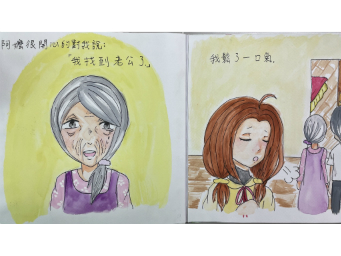 阿嬤很開心的對我說：
「我找到老公了」
我鬆了一口氣